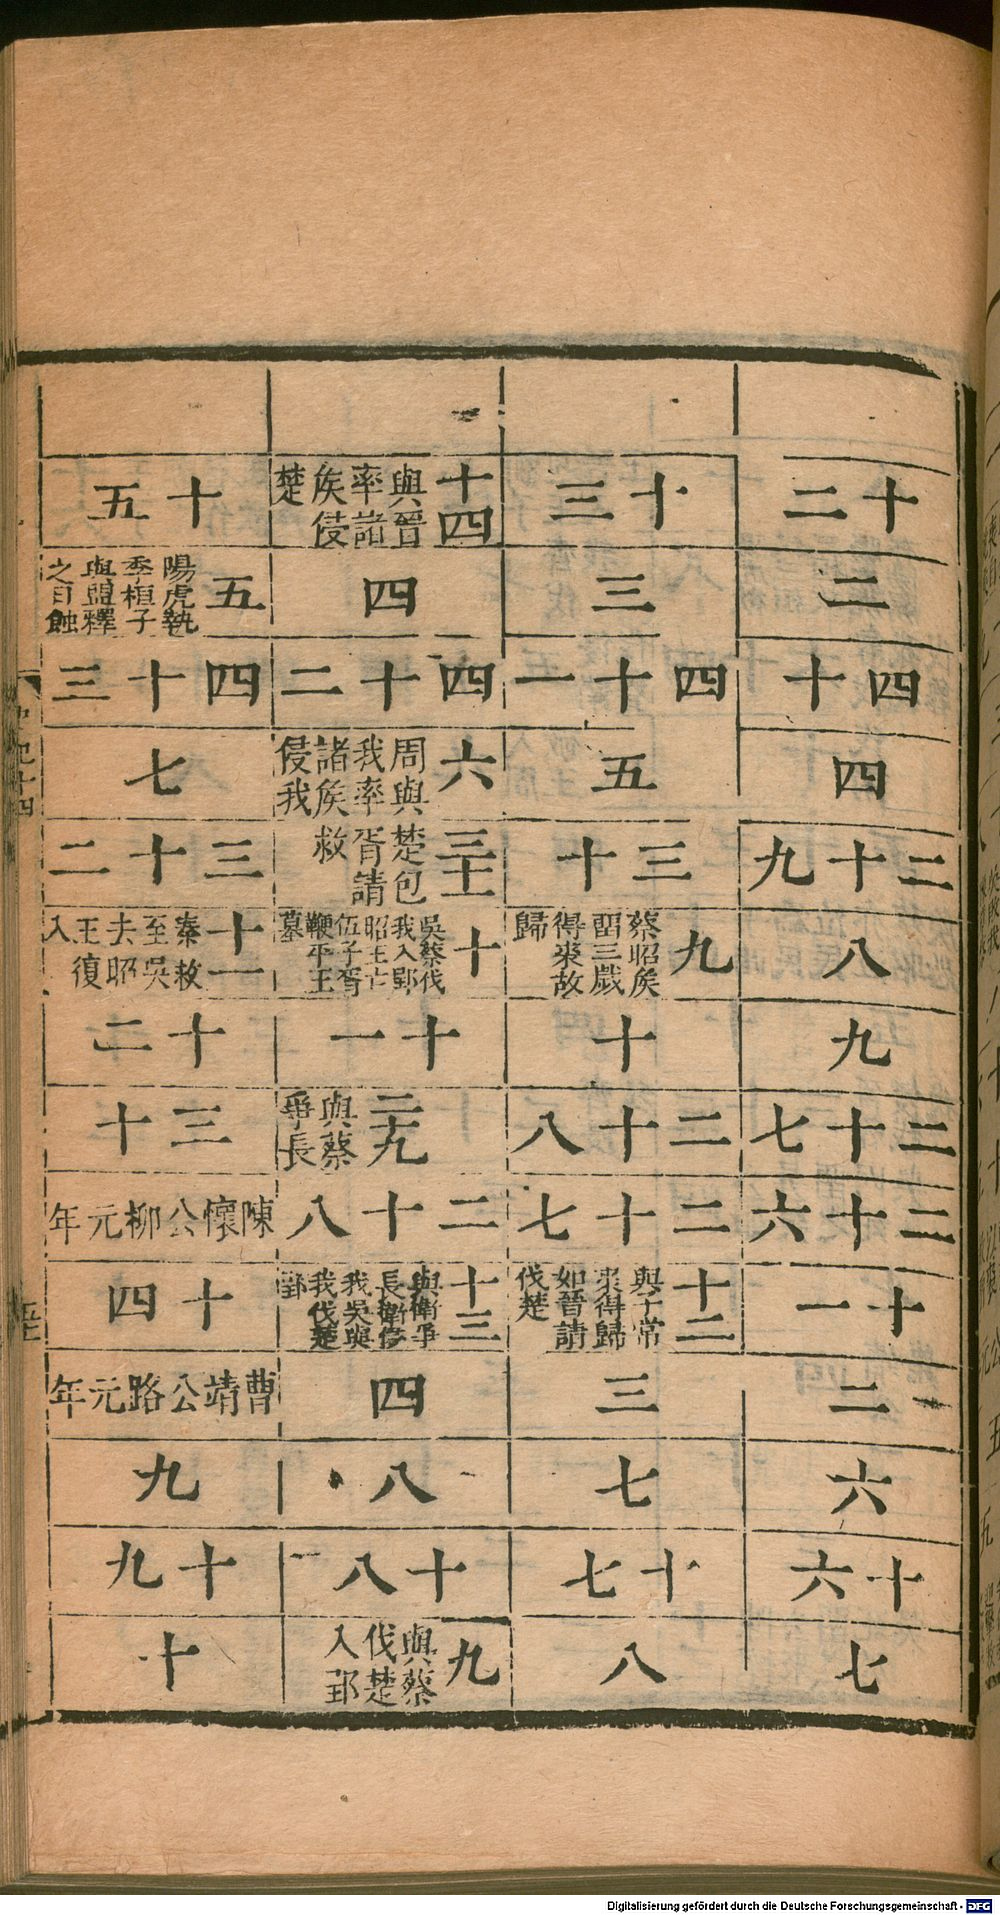 十二
二
四十
四
二十九
八
九
二十七
二十六
十一
二
六
十六
七
十三
三
四十一
五
三十
九
蔡昭矦
畱三歲
得裘故
歸
十
二十八
二十七
十二
與子常
裘得歸
如晉請
伐楚
三
七
十七
八
十四
與晉
率諸
矦侵
楚
四
四十二
六
周與
我率
諸矦
侵我
三十一
楚包
胥請
救
十
吳蔡伐
我入郢
昭王亡
伍子胥
鞭平王
墓
十一
二十九
與蔡
爭長
二十八
十三
與衛爭
長衛侵
我吳與
我伐楚
郢
四
八
十八
九
與蔡
伐楚
入郢
十五
五
陽虎執
季桓子
與盟釋
之日蝕
四十三
七
三十二
十一
秦救
至吳
去昭
王復
入
十二
三十
陳懷公柳元年
十四
曹靖公路元年
九
十九
十
史記十四
Digitalisierung gefördert durch die Deutsche Forschungsgemeinschaft - DFG